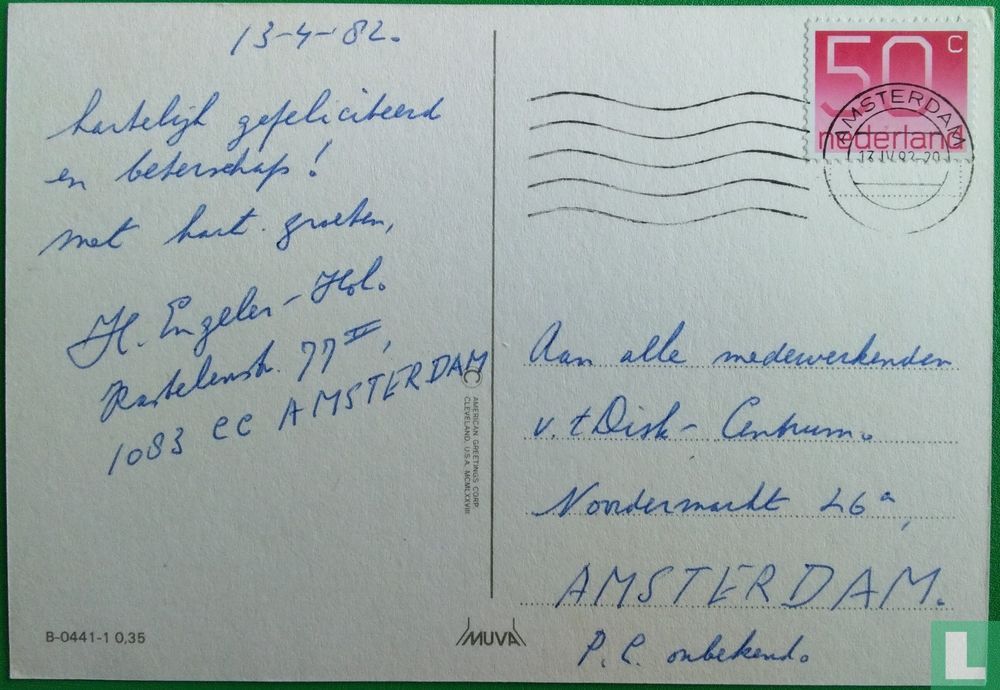 13-4-82.
hartelijk gefeliciteerd
en beterschap!
met hart. groeten,
H. Engeler-Hol.
Kastelenstr. 77 II,
1083 CC AMSTERDAM
© AMERICAN GREETINGS CORP.
CLEVELAND, U.S.A. MCMLXXVIII
B-0441-1 0,35
MUVA
50 c
nederland
AMSTERDAM
13.IV.82-20
Aan alle medewerkenden
v. 't Disk-Centrum.
Noordermarkt 26a,
AMSTERDAM.
P.C. onbekend.
L